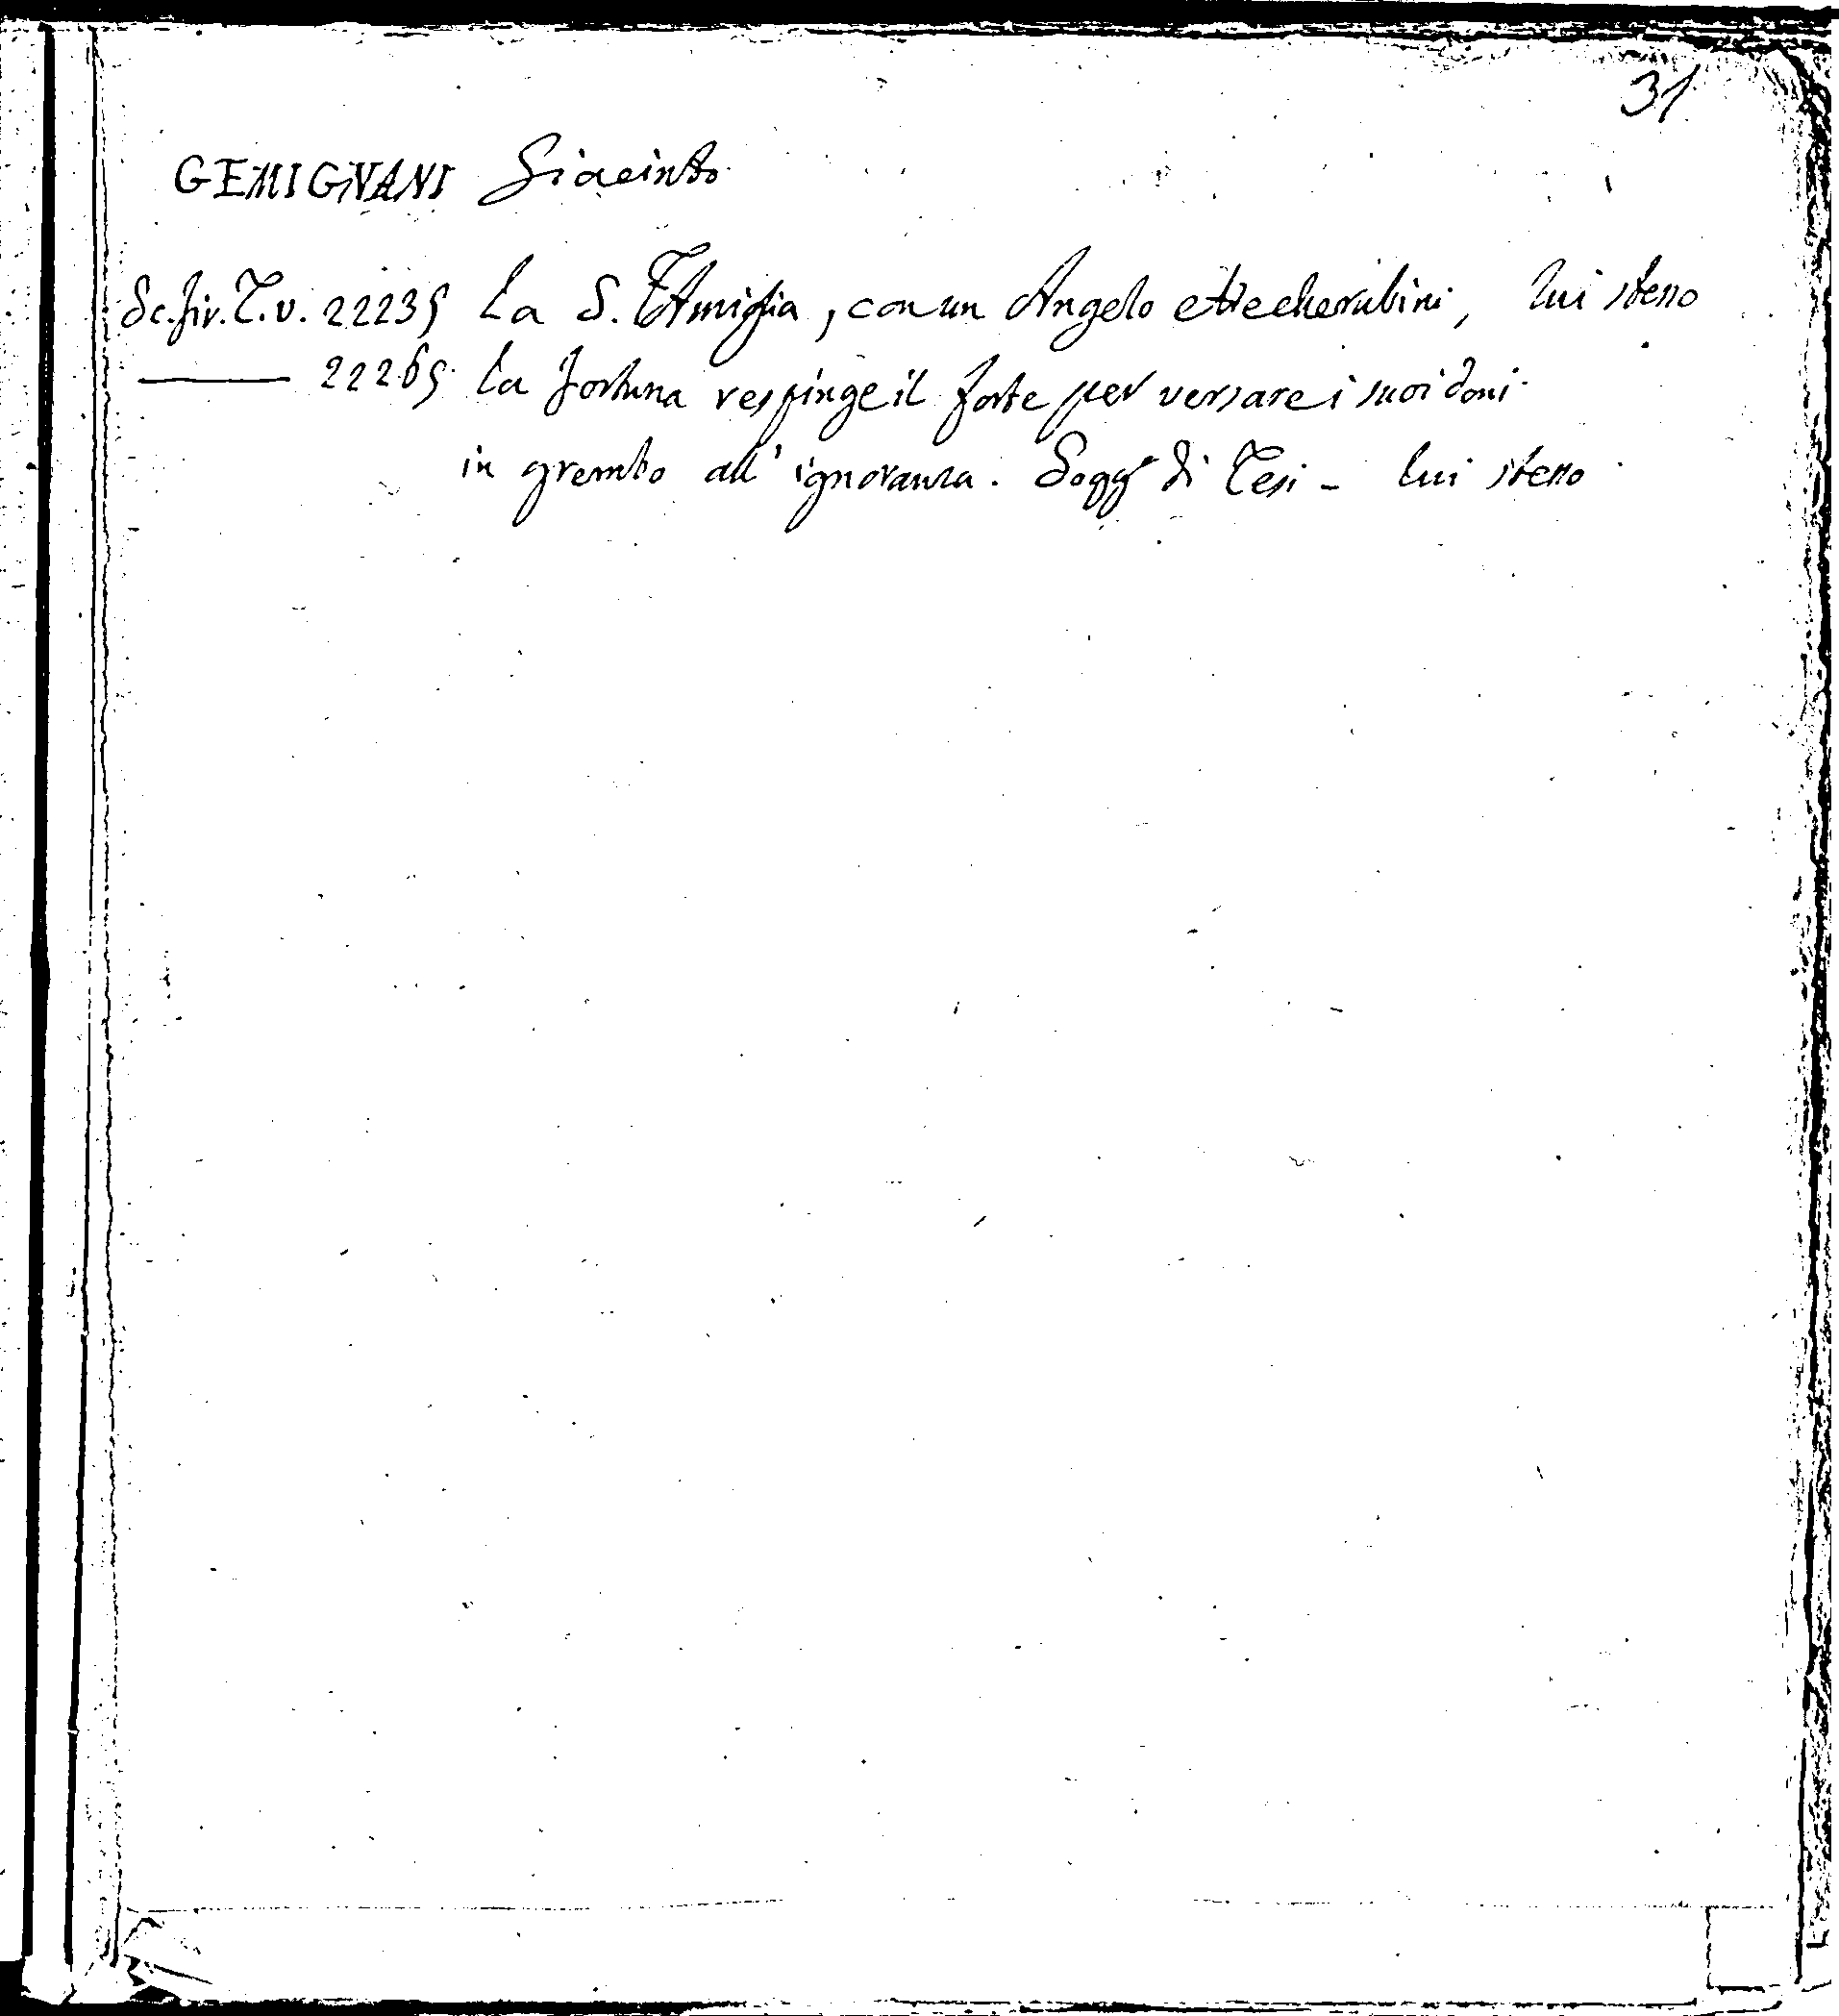 31
GEMIGNANI Giacinto
Sc. fir. T. v. 22235 La S. Famiglia, con un Angelo e tre cherubini, lui stesso
——— 22265 la fortuna respinge il forte per versare i suoi doni
in grembo all'ignoranza. Sogg° di Tesi - lui stesso